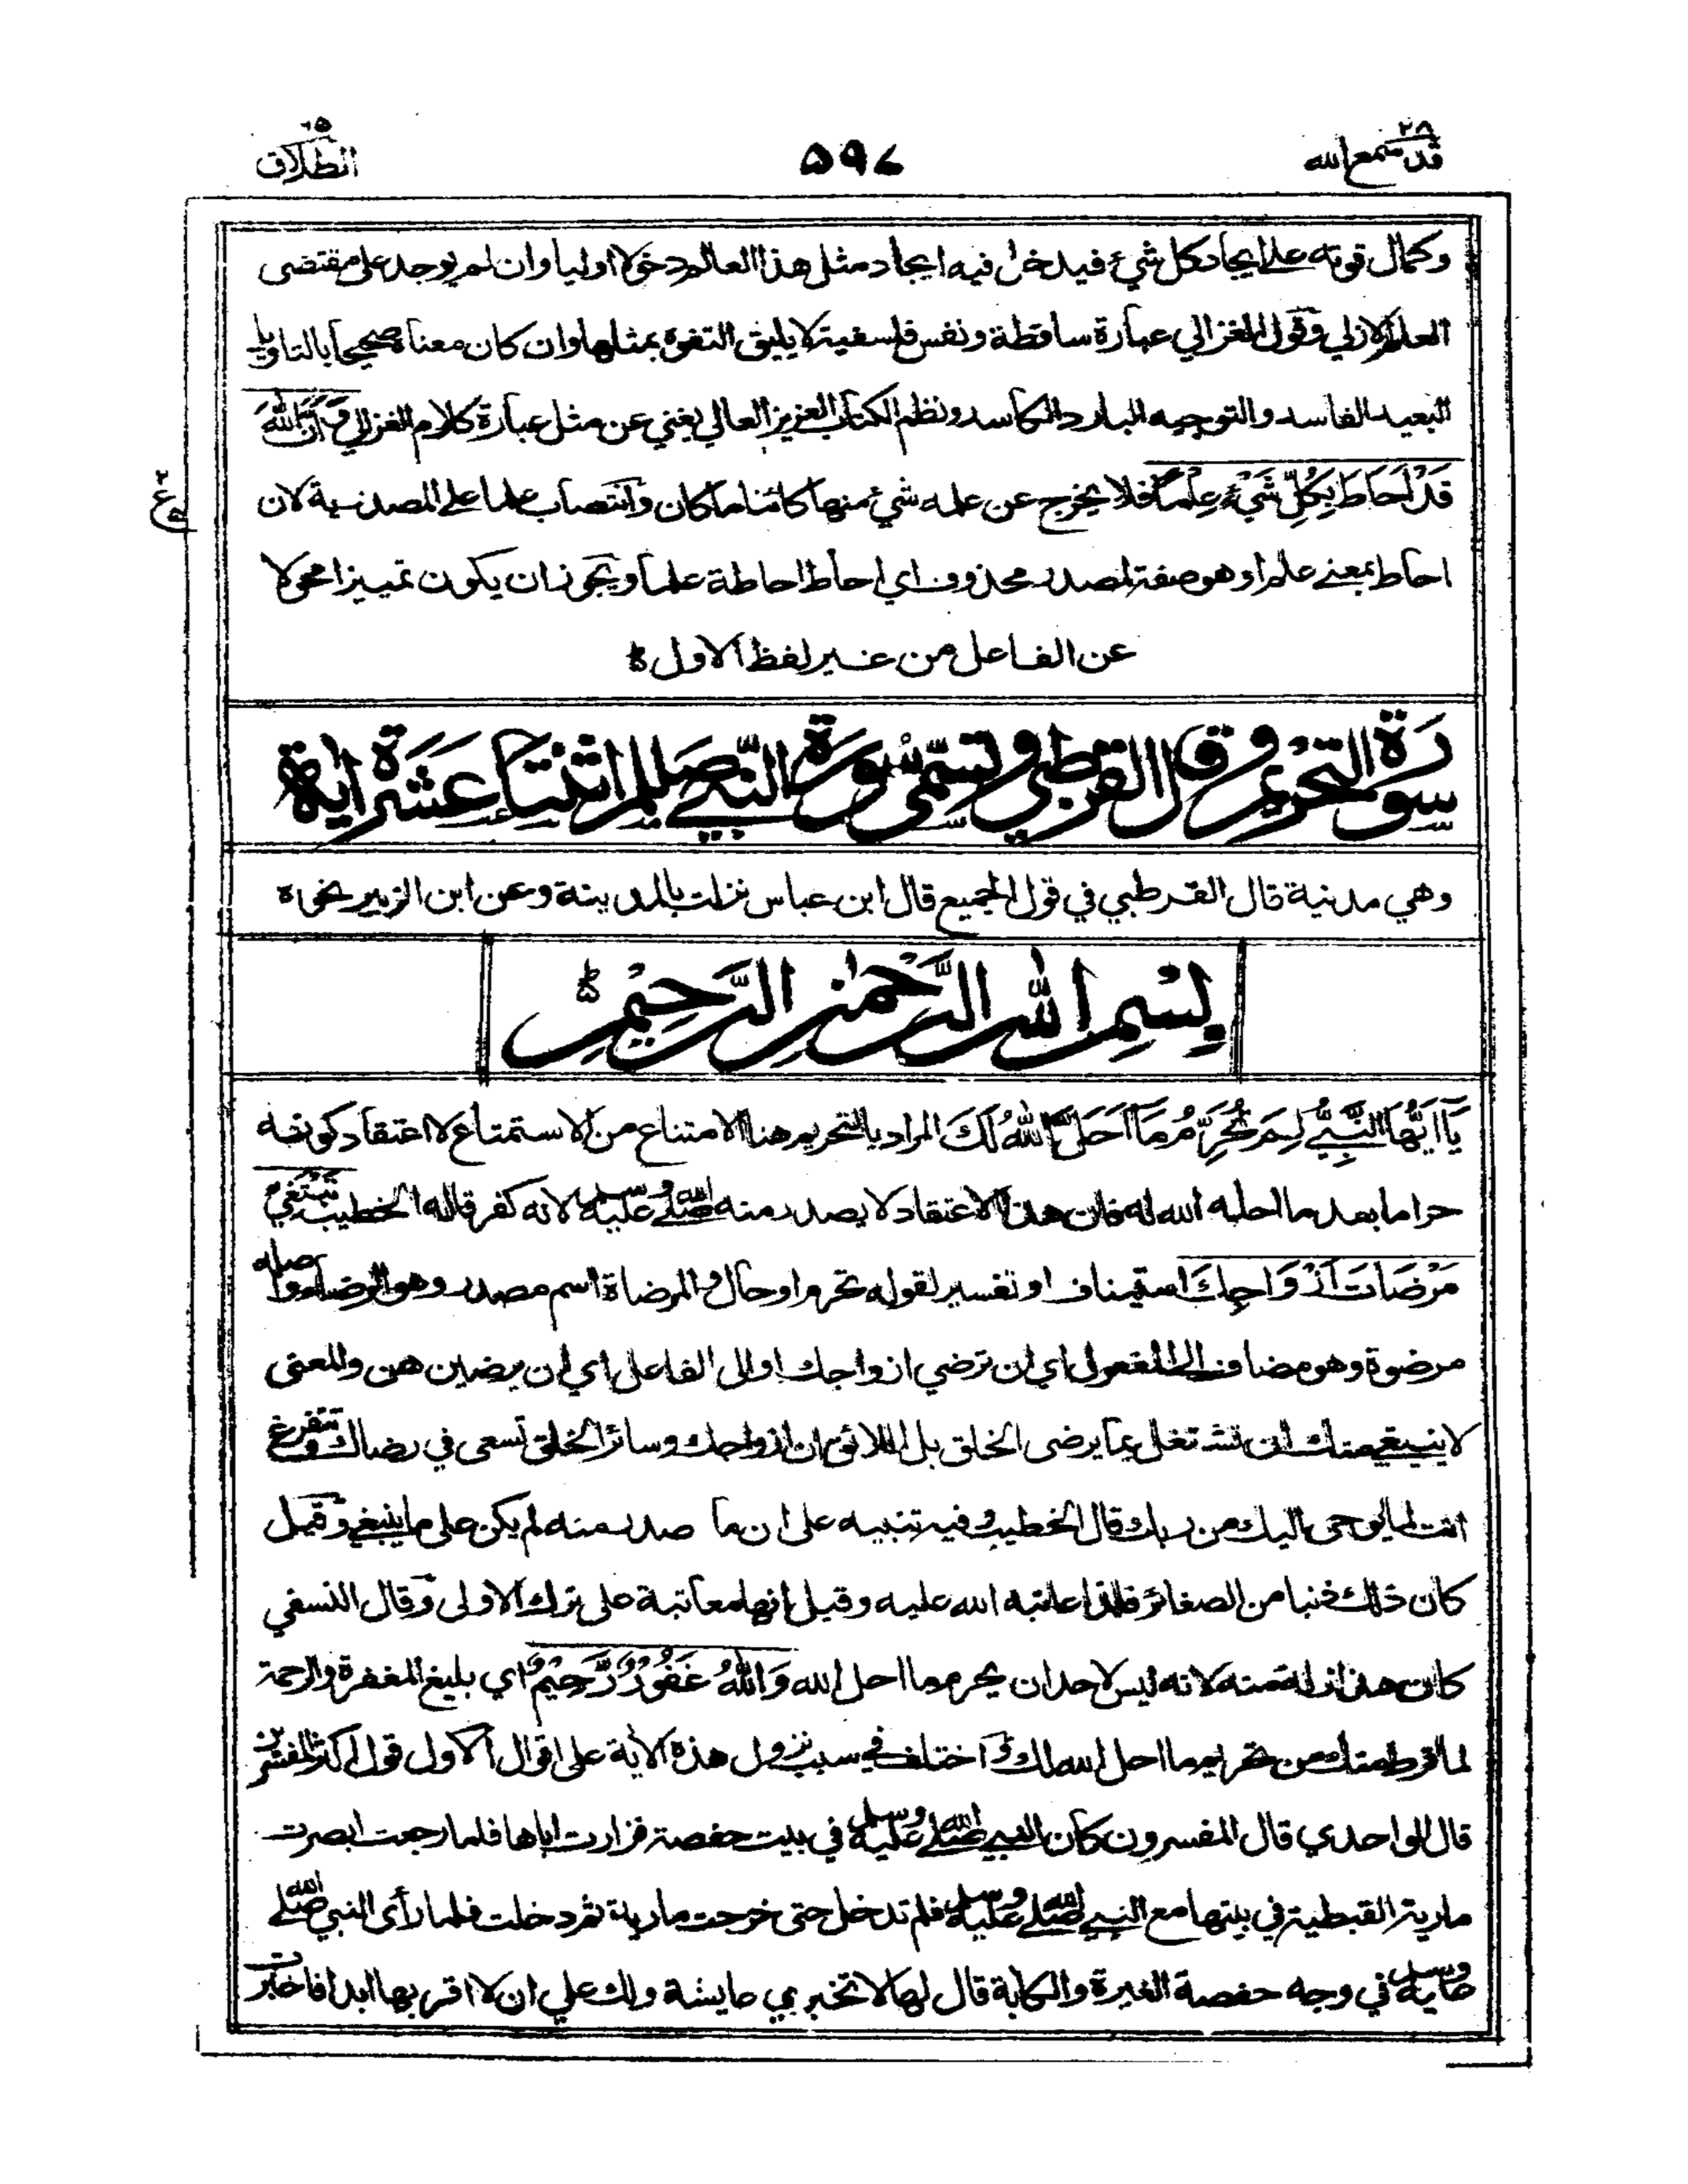 ٢٨
قد سمع الله
٥٩٧
٦٥
الطلاق
وكمال قوته على ايجاد كل شيء فيدخل فيه ايجاد مثل هذا العالم دخولا اوليا وان لم يوجد على مقتضى
العلم الازلي وقول الغزالي عبارة ساقطة ونفس فلسفية لا يليق التفوه بمثلها وان كان معناه صحيحا بالتاويل
البعيد الفاسد والتوجيه البارد الكاسد ونظم الكتاب العزيز العالي يغني عن مثل عبارة كلام الغزالي وَّاَنَّ اللهَ
قَدْ اَحَاطَ بِكُلِّ شَيْءٍ عِلْمًا فلا يخرج عن علمه شيء منها كائنا ما كان وانتصاب علما على المصدرية لان
احاط بمعنى علم او هو صفة لمصدر محذوف اي احاط احاطة علما ويجوز ان يكون تمييزا محولا
عن الفاعل من غير لفظ الاول
سورة التحريم وقال القرطبي وتسمى سورة النبي صللم اثنتا عشرة اية
وهي مدنية قال القرطبي في قول الجميع قال ابن عباس نزلت بالمدينة وعن ابن الزبير نحوه
بِسْمِ اللهِ الرَّحْمٰنِ الرَّحِيْمِ
يَا اَيُّهَا النَّبِيُّ لِمَ تُحَرِّمُ مَا اَحَلَّ اللهُ لَكَ المراد بالتحريم هنا الامتناع من الاستمتاع لا اعتقاد كونه
حراما بعد ما احله الله له فان هذا الاعتقاد لا يصدر منه صلى الله عليه وسلم لانه كفر قاله الخطيب تَبْتَغِيْ
مَرْضَاتَ اَزْوَاجِكَ استيناف او تفسير لقوله تحرم او حال والمرضاة اسم مصدر وهو الرضا واصله
مرضوة وهو مضاف الى المفعول اي ان ترضي ازواجك او الى الفاعل اي ان يرضين هن والمعنى
لا ينبغي منك ان تشتغل بما يرضى الخلق بل اللائق ان ازواجك وسائر الخلق تسعى في رضاك وتتفرغ
انت لما يوحى اليك من ربك قال الخطيب وفيه تنبيه على ان ما صدر منه لم يكن على ما ينبغي وقيل
كان ذلك ذنبا من الصغائر فلذا عاتبه الله عليه وقيل انها معاتبة على ترك الاولى وقال النسفي
كان هذا زلة منه لانه ليس لاحد ان يحرم ما احل الله وَاللهُ غَفُوْرٌ رَّحِيْمٌ اي بليغ المغفرة والرحمة
لما فرط منك من تحريم ما احل الله لك و اختلف في سبب نزول هذه الاية على اقوال الاول قول اكثر المفسرين
قال الواحدي قال المفسرون كان النبي صلى الله عليه وسلم في بيت حفصة فزارت اباها فلما رجعت ابصرت
مارية القبطية في بيتها مع النبي صلى الله عليه وسلم فلم تدخل حتى خرجت مارية ثم دخلت فلما رأى النبي صلى الله
عليه وسلم في وجه حفصة الغيرة والكابة قال لها لا تخبري عايشة ولك علي ان لا اقربها ابدا فاخبرت